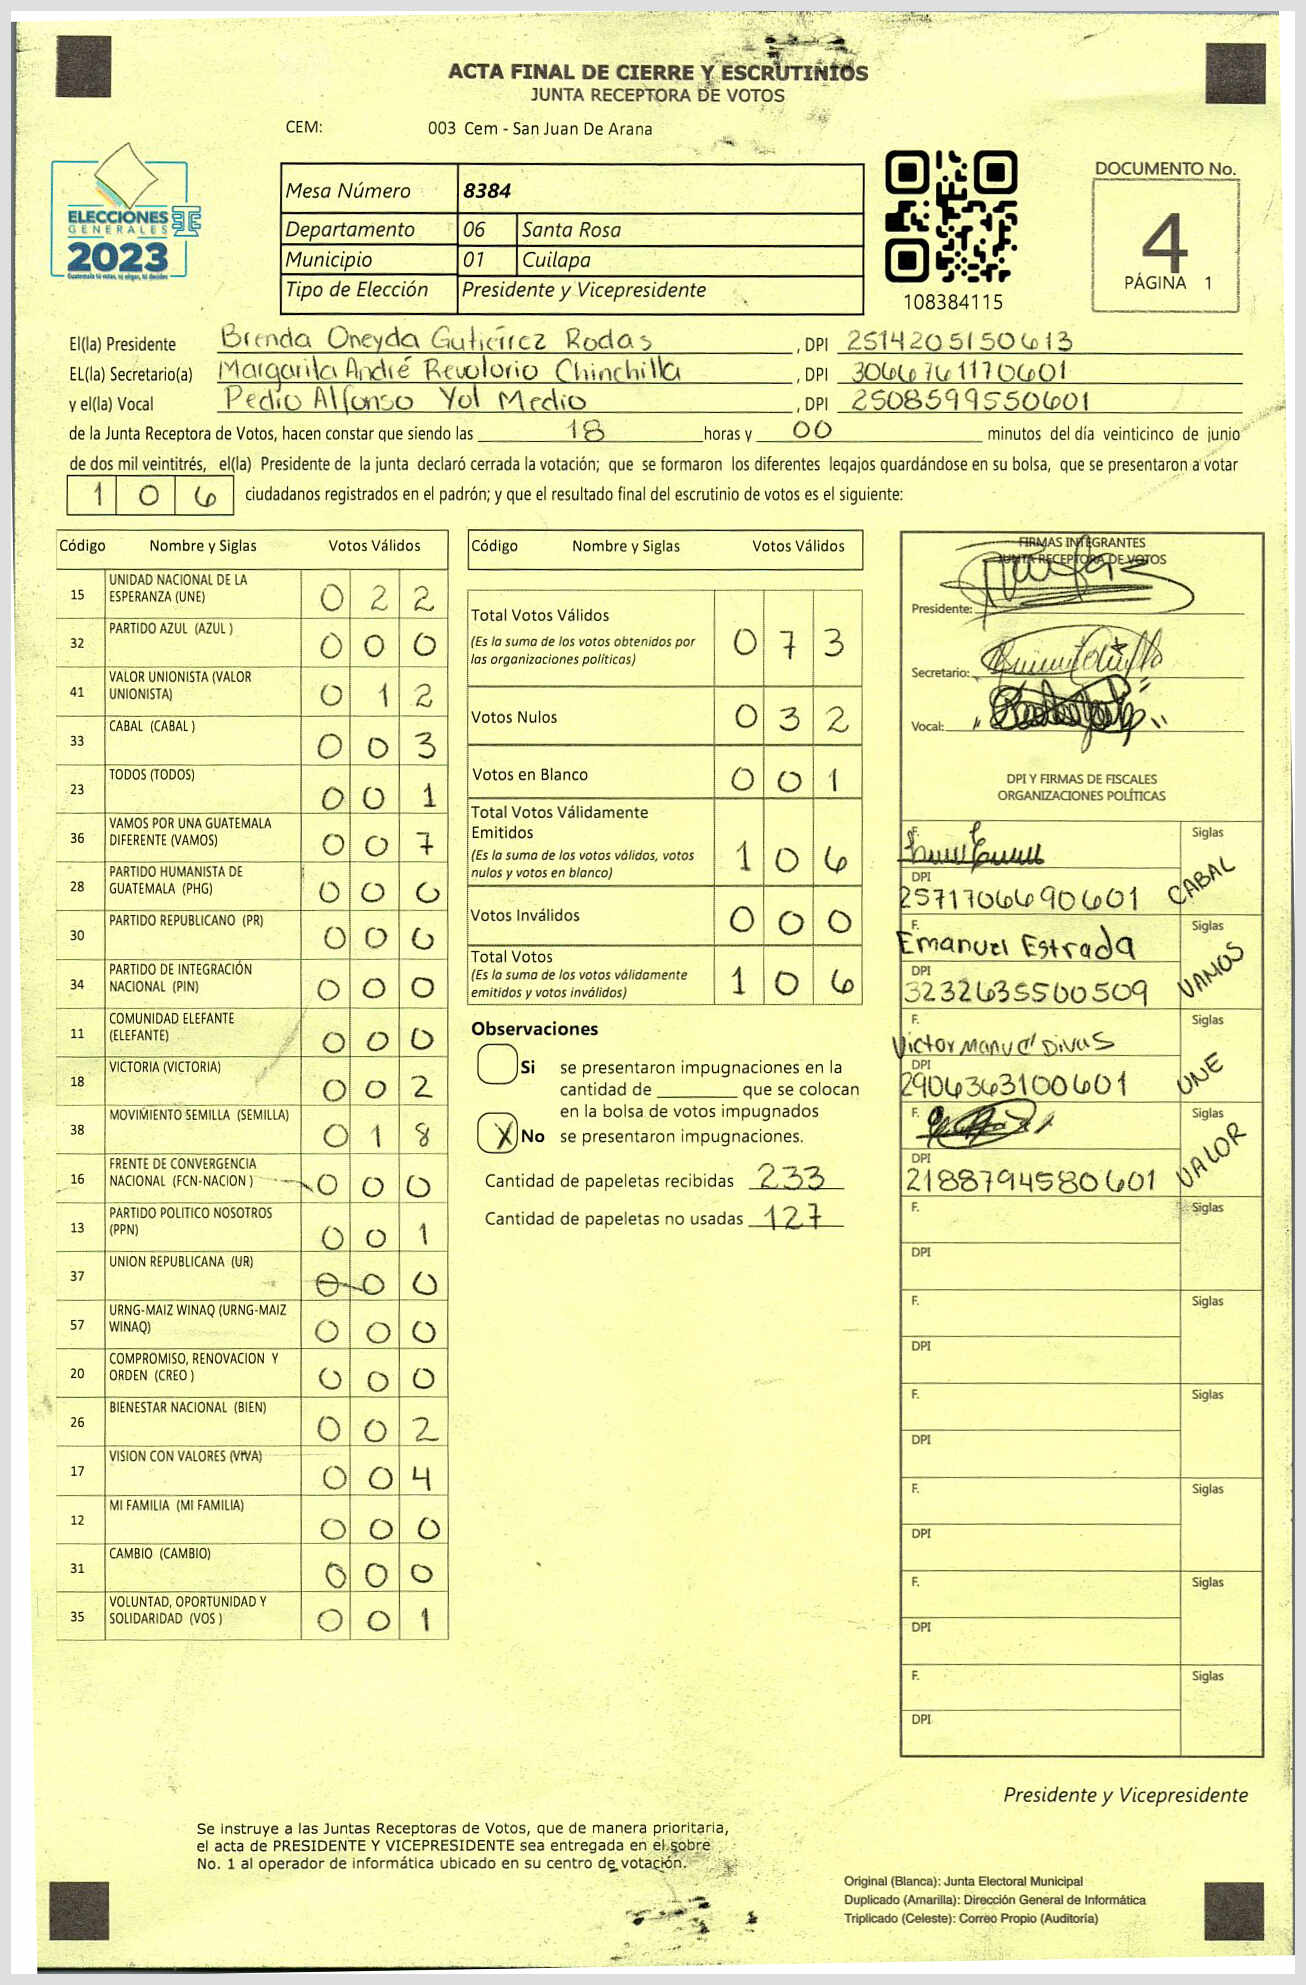 ACTA FINAL DE CIERRE Y ESCRUTINIOS
JUNTA RECEPTORA DE VOTOS
CEM: 003 Cem - San Juan De Arana
ELECCIONES
GENERALES
2023
Mesa Número 8384
Departamento 06 Santa Rosa
Municipio 01 Cuilapa
Tipo de Elección Presidente y Vicepresidente
108384115
DOCUMENTO No.
4
PÁGINA 1
El(la) Presidente Brenda Oneyda Gutiérrez Rodas , DPI 2514205150613
EL(la) Secretario(a) Margarita André Revolorio Chinchilla , DPI 3066761170601
y el(la) Vocal Pedro Alfonso Yol Medio , DPI 2508599550601
de la Junta Receptora de Votos, hacen constar que siendo las 18 horas y 00 minutos del día veinticinco de junio
de dos mil veintitrés, el(la) Presidente de la junta declaró cerrada la votación; que se formaron los diferentes legajos guardándose en su bolsa, que se presentaron a votar
1 0 6 ciudadanos registrados en el padrón; y que el resultado final del escrutinio de votos es el siguiente:
Código Nombre y Siglas Votos Válidos
15 UNIDAD NACIONAL DE LA
ESPERANZA (UNE) 0 2 2
32 PARTIDO AZUL (AZUL ) 0 0 0
41 VALOR UNIONISTA (VALOR
UNIONISTA) 0 1 2
33 CABAL (CABAL ) 0 0 3
23 TODOS (TODOS) 0 0 1
36 VAMOS POR UNA GUATEMALA
DIFERENTE (VAMOS) 0 0 7
28 PARTIDO HUMANISTA DE
GUATEMALA (PHG) 0 0 0
30 PARTIDO REPUBLICANO (PR) 0 0 0
34 PARTIDO DE INTEGRACIÓN
NACIONAL (PIN) 0 0 0
11 COMUNIDAD ELEFANTE
(ELEFANTE) 0 0 0
18 VICTORIA (VICTORIA) 0 0 2
38 MOVIMIENTO SEMILLA (SEMILLA) 0 1 8
16 FRENTE DE CONVERGENCIA
NACIONAL (FCN-NACION ) 0 0 0
13 PARTIDO POLITICO NOSOTROS
(PPN) 0 0 1
37 UNION REPUBLICANA (UR) 0 0 0
57 URNG-MAIZ WINAQ (URNG-MAIZ
WINAQ) 0 0 0
20 COMPROMISO, RENOVACION Y
ORDEN (CREO ) 0 0 0
26 BIENESTAR NACIONAL (BIEN) 0 0 2
17 VISION CON VALORES (VIVA) 0 0 4
12 MI FAMILIA (MI FAMILIA) 0 0 0
31 CAMBIO (CAMBIO) 0 0 0
35 VOLUNTAD, OPORTUNIDAD Y
SOLIDARIDAD (VOS ) 0 0 1
Código Nombre y Siglas Votos Válidos
Total Votos Válidos
(Es la suma de los votos obtenidos por
las organizaciones políticas) 0 7 3
Votos Nulos 0 3 2
Votos en Blanco 0 0 1
Total Votos Válidamente
Emitidos
(Es la suma de los votos válidos, votos
nulos y votos en blanco) 1 0 6
Votos Inválidos 0 0 0
Total Votos
(Es la suma de los votos válidamente
emitidos y votos inválidos) 1 0 6
Observaciones
Si se presentaron impugnaciones en la
cantidad de ________ que se colocan
en la bolsa de votos impugnados
X No se presentaron impugnaciones.
Cantidad de papeletas recibidas 233
Cantidad de papeletas no usadas 127
FIRMAS INTEGRANTES
JUNTA RECEPTORA DE VOTOS
Presidente:
Secretario:
Vocal:
DPI Y FIRMAS DE FISCALES
ORGANIZACIONES POLÍTICAS
F. Siglas
DPI
2571706690601 CABAL
F. Siglas
Emanuel Estrada
DPI
3232635500509 VAMOS
F. Siglas
Victor Manuel Divas
DPI
2906363100601 UNE
F. Siglas
DPI
2188794580601 VALOR
F. Siglas
DPI
F. Siglas
DPI
F. Siglas
DPI
F. Siglas
DPI
F. Siglas
DPI
F. Siglas
DPI
Presidente y Vicepresidente
Se instruye a las Juntas Receptoras de Votos, que de manera prioritaria,
el acta de PRESIDENTE Y VICEPRESIDENTE sea entregada en el sobre
No. 1 al operador de informática ubicado en su centro de votación.
Original (Blanca): Junta Electoral Municipal
Duplicado (Amarilla): Dirección General de Informática
Triplicado (Celeste): Correo Propio (Auditoría)